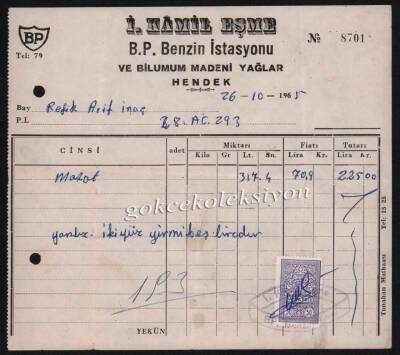 İ. KÂMİL EŞME
BP
B.P. Benzin İstasyonu
№ 8701
Tel: 79
VE BİLUMUM MADENİ YAĞLAR
HENDEK
26-10-1965
Bay Refik Arif inaç
P.L. 28. AC. 293
CİNSİ adet Miktarı Fiatı Tutarı
Kilo Gr Lt. Sn. Lira Kr. Lira Kr.
Mazot 317.4 70,9 225 00
gokcekoleksiyon
yanlız. ikiyüz yirmibeş liradır
Tunahan Matbaası Tel: 15 25
YEKÜN